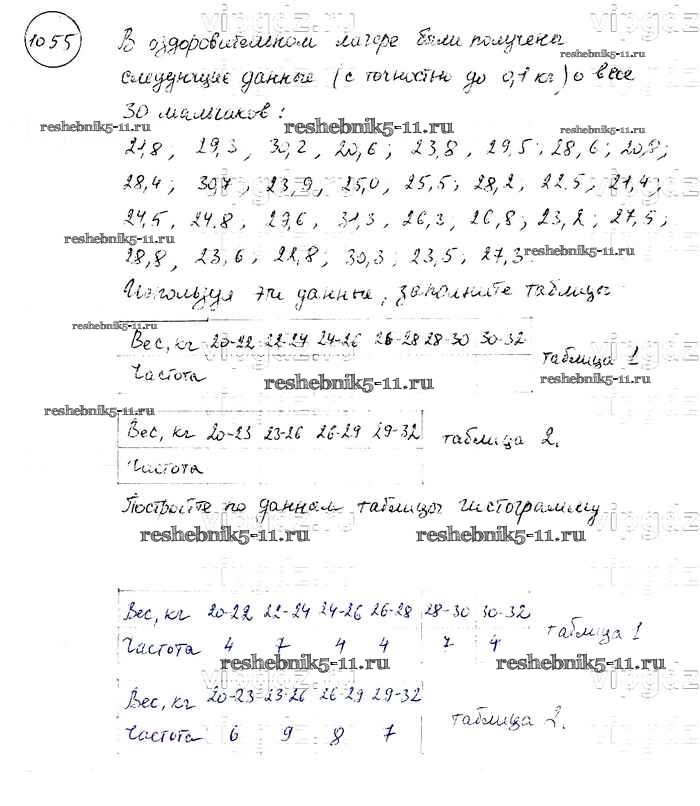 1055
В оздоровительном лагере были получены
следующие данные (с точностью до 0,1 кг) о весе
30 мальчиков:
21,8; 29,3, 30,2, 20,6; 23,8, 29,5; 28,6; 20,8;
28,4; 30,7, 23,9, 25,0, 25,5; 28,2, 22,5, 21,4;
24,5, 24,8, 29,6, 31,3, 26,3; 26,8; 23,2; 27,5;
28,8, 23,6; 22,8; 30,3; 23,5; 27,3
Используя эти данные, заполните таблицы
Вес, кг 20-22 22-24 24-26 26-28 28-30 30-32
Частота
таблица 1
Вес, кг 20-23 23-26 26-29 29-32
Частота
таблица 2.
Постройте по данным таблицы гистограмму
Вес, кг 20-22 22-24 24-26 26-28 28-30 30-32
Частота 4 7 4 4 7 4
таблица 1
Вес, кг 20-23 23-26 26-29 29-32
Частота 6 9 8 7
таблица 2.
reshebnik5-11.ru
vipgdz.ru